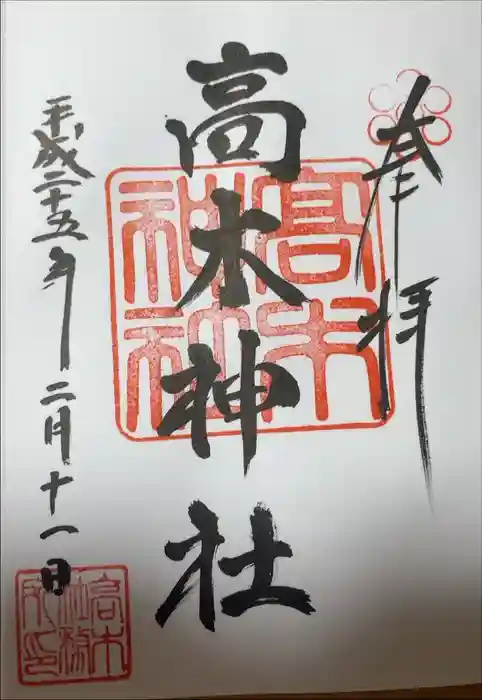 奉拝
高木神社
髙木神社
平成二十五年二月十一日
高木社務所印